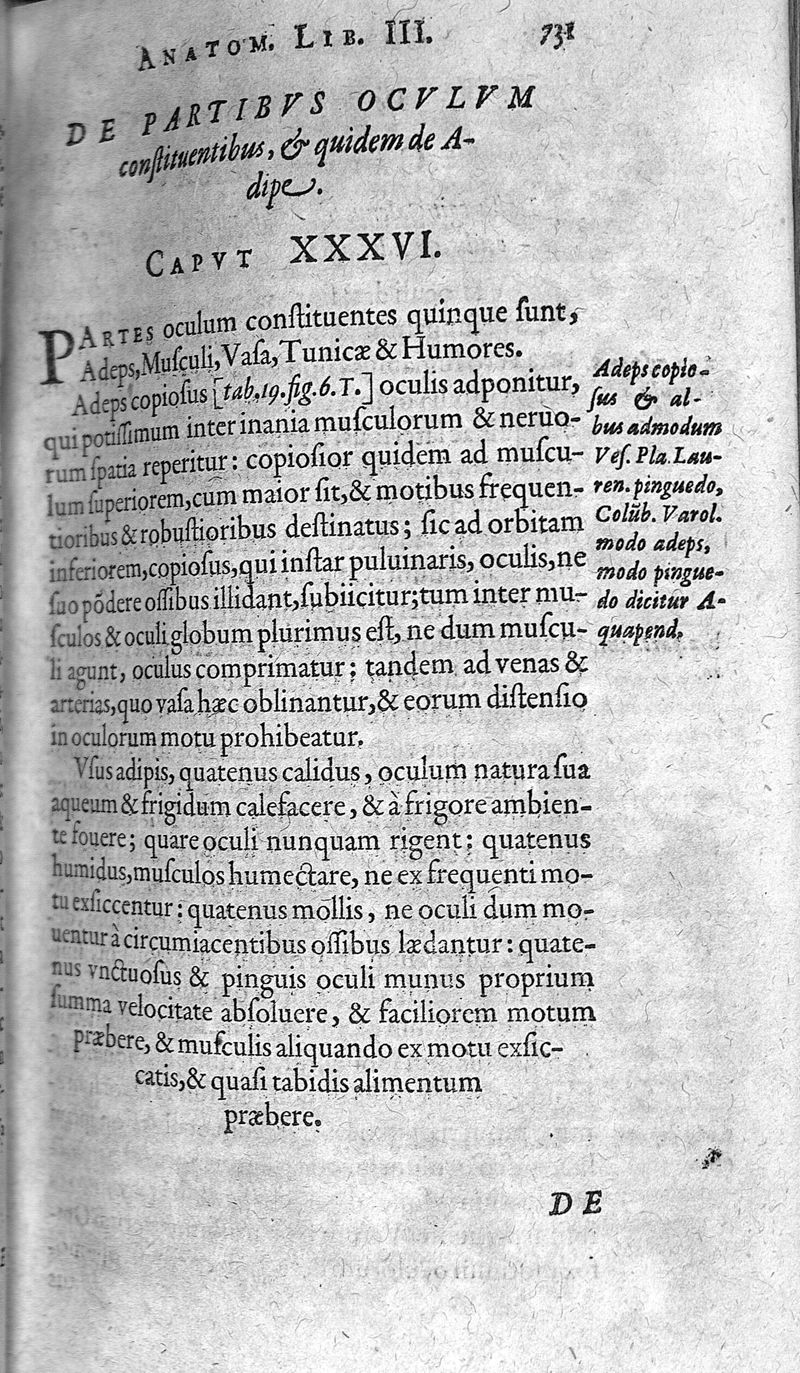 ANATOM. LIB. III. 731
DE PARTIBVS OCVLVM
conſtituentibus, & quidem de A-
dipe.
CAPVT XXXVI.
PARTES oculum conſtituentes quinque ſunt,
Adeps, Muſculi, Vaſa, Tunicæ & Humores.
Adeps copioſus [tab. 19. fig. 6. T.] oculis adponitur,
qui potiſſimum inter inania muſculorum & neruo-
rum ſpatia reperitur: copioſior quidem ad muſcu-
lum ſuperiorem, cùm maior ſit, & motibus frequen-
tioribus & robuſtioribus deſtinatus; ſic ad orbitam
inferiorem, copioſus, qui inſtar puluinaris, oculis, ne
ſuo põdere oſſibus illidant, ſubiicitur; tum inter mu-
ſculos & oculi globum plurimus eſt, ne dum muſcu-
li agunt, oculus comprimatur; tandem ad venas &
arterias, quo vaſa hæc oblinantur, & eorum diſtenſio
in oculorum motu prohibeatur.
Vſus adipis, quatenus calidus, oculum natura ſua
aqueum & frigidum calefacere, & à frigore ambien-
te fouere; quare oculi nunquam rigent: quatenus
humidus, muſculos humectare, ne ex frequenti mo-
tu exſiccentur: quatenus mollis, ne oculi dum mo-
uentur à circumiacentibus oſſibus lædantur: quate-
nus vnctuoſus & pinguis oculi munus proprium
ſumma velocitate abſoluere, & faciliorem motum
præbere, & muſculis aliquando ex motu exſic-
catis, & quaſi tabidis alimentum
præbere.
Adeps copio-
ſus & al-
bus admodum
Veſ. Pla. Lau-
ren. pinguedo,
Colũb. Varol.
modo adeps,
modo pingue-
do dicitur A-
quapend.
DE